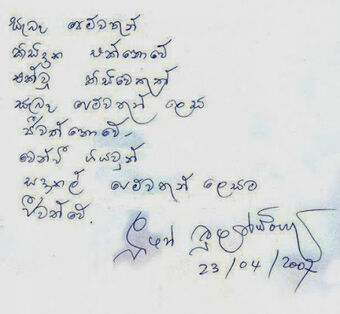 සැබෑ පෙම්වතුන්
කිසිදා එක්නොවේ
එක්වූ කිසිවෙකුත්
සැබෑ පෙම්වතුන් ලෙස
ජීවත් නොවේ.
වෙන්වී ගියවුන්
සදාකල් පෙම්වතුන් ලෙසම
ජීවත්වේ.
23/04/2007